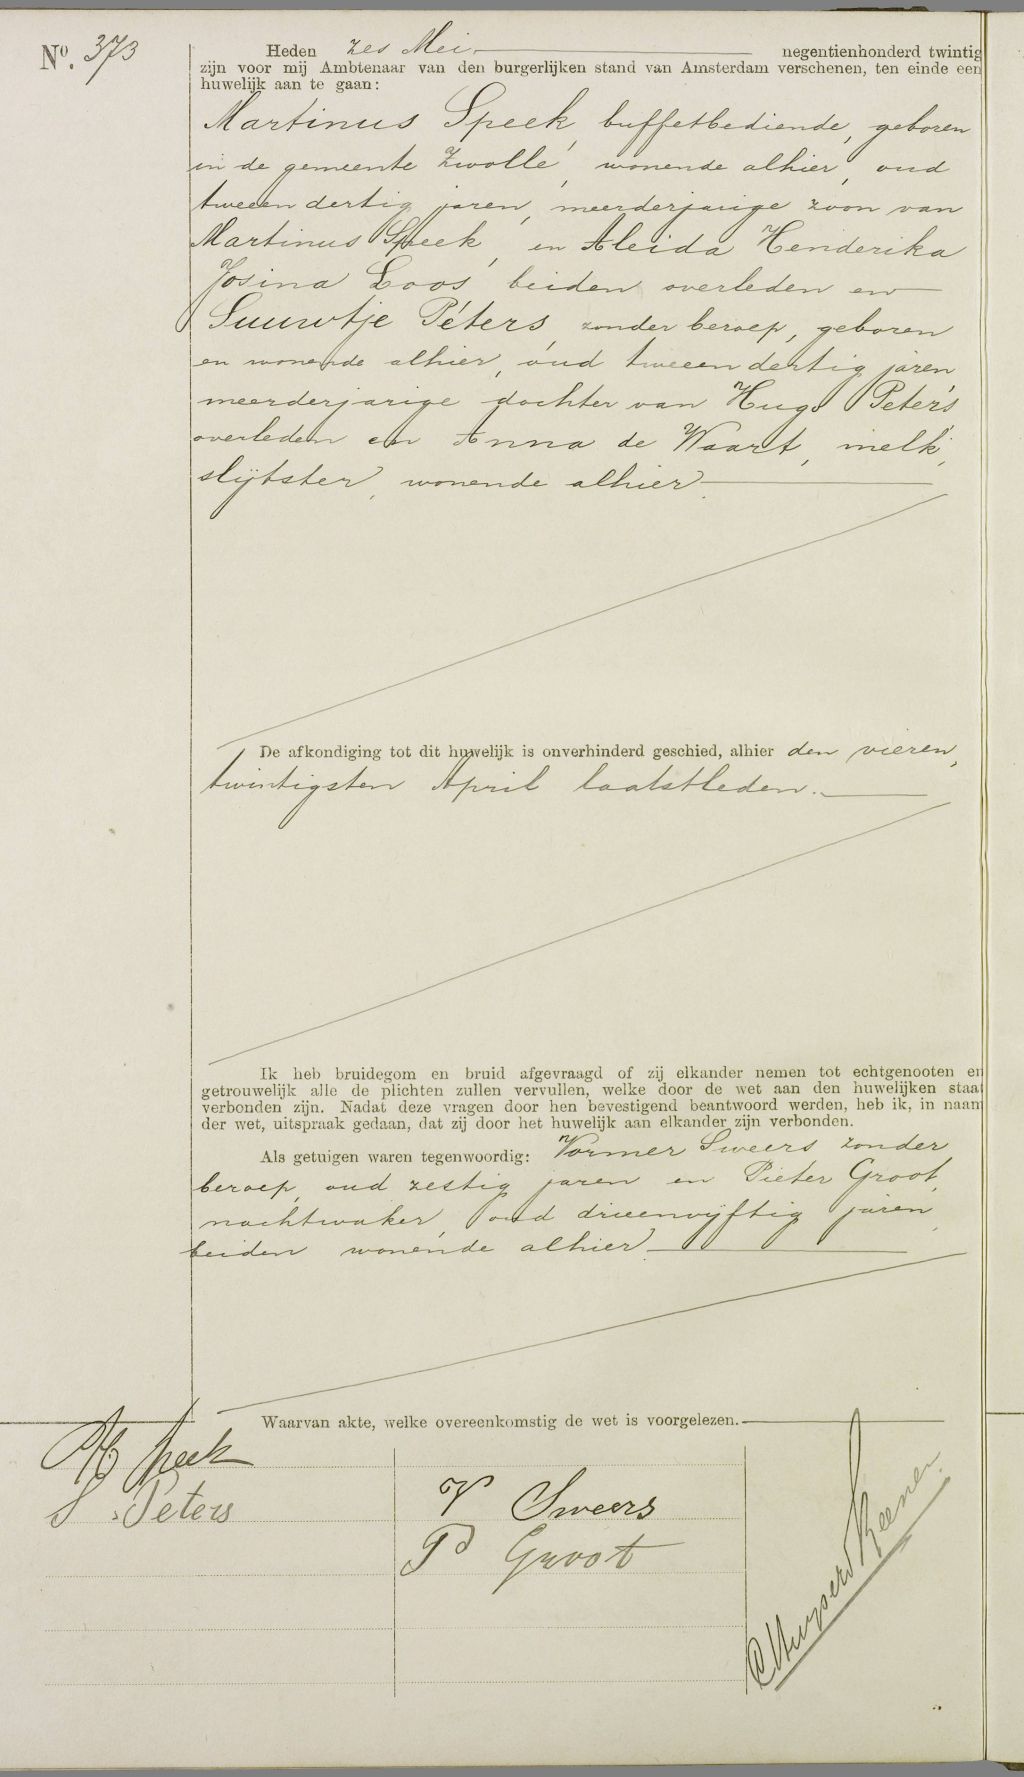 No. 373
Heden zes Mei negentienhonderd twintig
zijn voor mij Ambtenaar van den burgerlijken stand van Amsterdam verschenen, ten einde een
huwelijk aan te gaan:
Martinus Speek, buffetbediende, geboren
in de gemeente Zwolle, wonende alhier, oud
tweeen dertig jaren, meerderjarige zoon van
Martinus Speek, en Aleida Henderika
Josina Loos, beiden overleden en
Suuwtje Peters, zonder beroep, geboren
en wonende alhier, oud tweeen dertig jaren
meerderjarige dochter van Hugo Peters,
overleden en Anna de Waart, melk,
slijtster, wonende alhier.
De afkondiging tot dit huwelijk is onverhinderd geschied, alhier den vieren,
twintigsten April laatstleden.
Ik heb bruidegom en bruid afgevraagd of zij elkander nemen tot echtgenooten en
getrouwelijk alle de plichten zullen vervullen, welke door de wet aan den huwelijken staat
verbonden zijn. Nadat deze vragen door hen bevestigend beantwoord werden, heb ik, in naam
der wet, uitspraak gedaan, dat zij door het huwelijk aan elkander zijn verbonden.
Als getuigen waren tegenwoordig: Vormer Sweers zonder
beroep, oud zestig jaren en Pieter Groot,
nachtwaker, oud drieenvijftig jaren,
beiden wonende alhier
Waarvan akte, welke overeenkomstig de wet is voorgelezen.
M Speek
S. Peters
V Sweers
P Groot